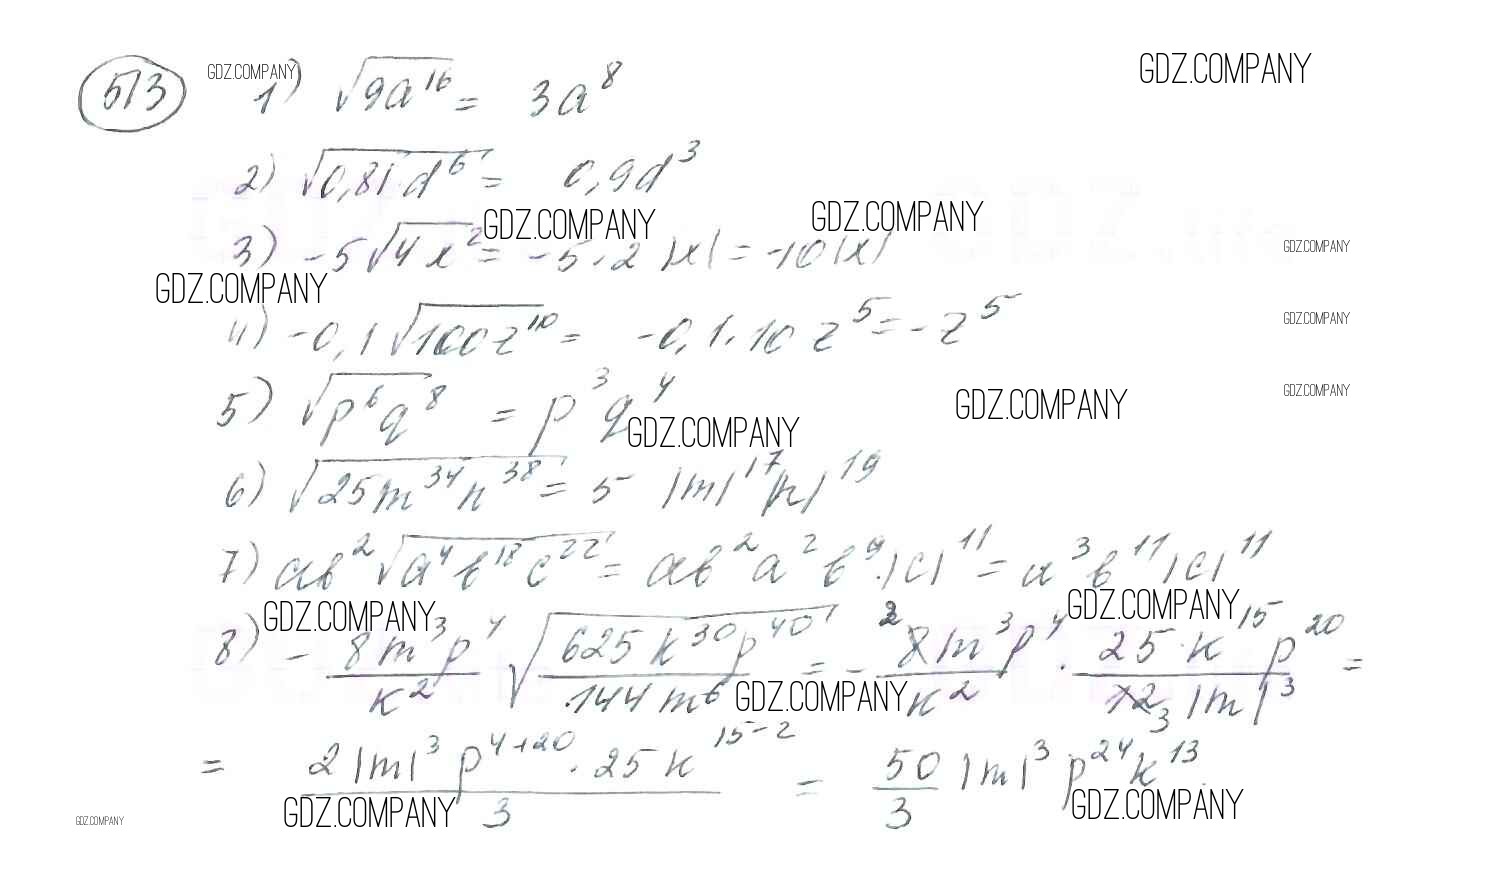 513 GDZ.COMPANY 1) √9a¹⁶ = 3a⁸ GDZ.COMPANY
2) √0,81d⁶ = 0,9d³
GDZ.COMPANY GDZ.COMPANY
3) -5√4x² = -5·2|x| = -10|x| GDZ.COMPANY
GDZ.COMPANY
4) -0,1√100z¹⁰ = -0,1·10z⁵ = -z⁵ GDZ.COMPANY
5) √p⁶q⁸ = p³q⁴ GDZ.COMPANY GDZ.COMPANY
GDZ.COMPANY
6) √25m³⁴n³⁸ = 5|m|¹⁷|n|¹⁹
7) ab²√a⁴b¹⁸c²² = ab²a²b⁹·|c|¹¹ = a³b¹¹|c|¹¹
GDZ.COMPANY GDZ.COMPANY
8) - 8m³p⁴/k² √625k³⁰p⁴⁰/144m⁶ = - ²8m³p⁴/k² · 25·k¹⁵p²⁰/12₃|m|³ =
GDZ.COMPANY
= 2|m|³p⁴⁺²⁰·25k¹⁵⁻²/3 = 50/3 |m|³p²⁴k¹³.
GDZ.COMPANY GDZ.COMPANY
GDZ.COMPANY